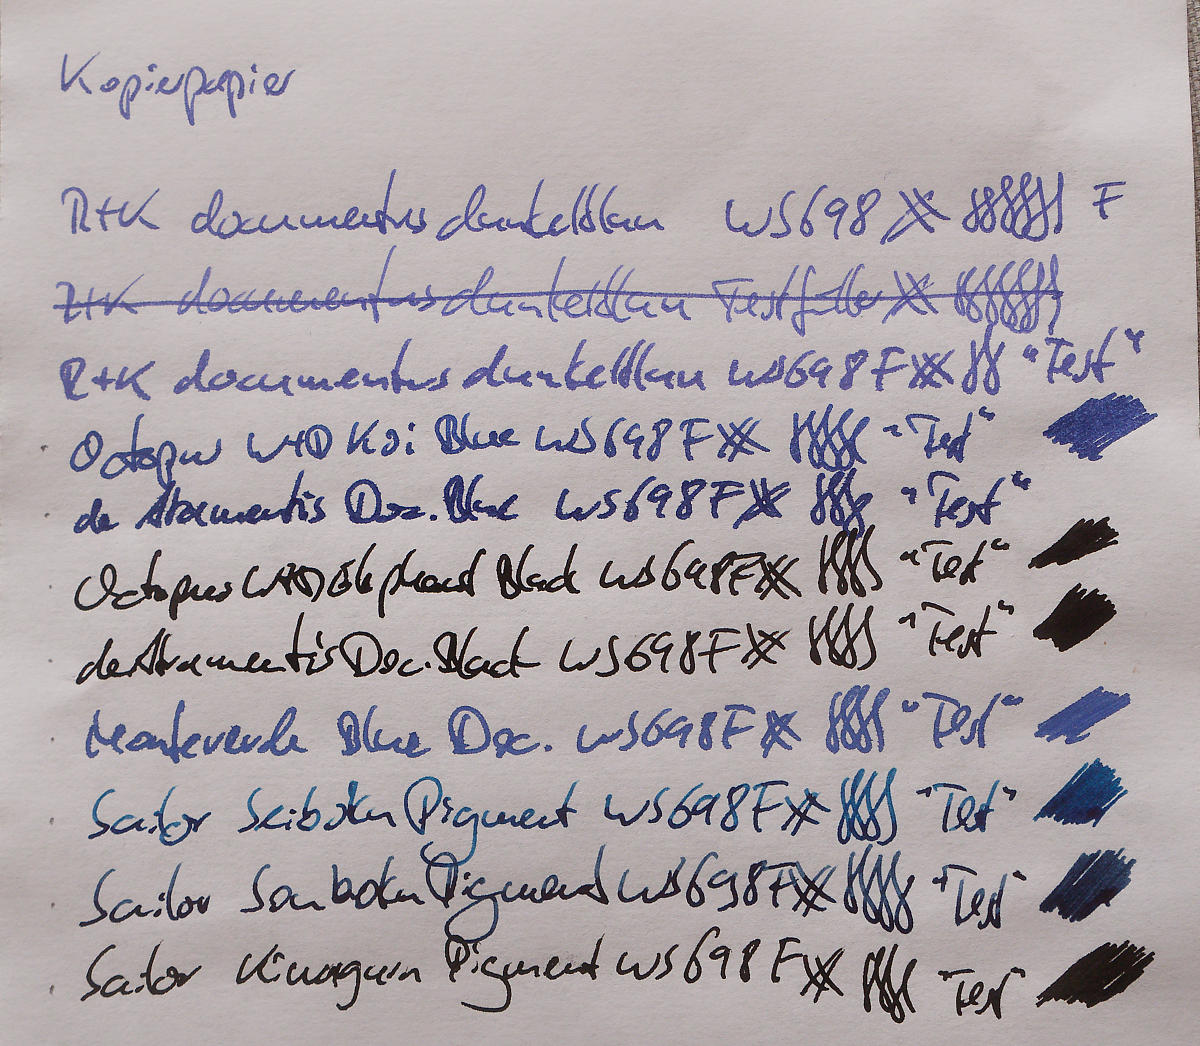 Kopierpapier
R+K documentus dunkelblau WS698 F
R+K documentus dunkelblau Testfüller
R+K documentus dunkelblau WS698 F "Test"
Octopus W+D Koi Blue WS698 F "Test"
de Atramentis Doc. Blue WS698 F "Test"
Octopus W+D Elephant Black WS698 F "Test"
de Atramentis Doc. Black WS698 F "Test"
Monteverde Blue Doc. WS698 F "Test"
Sailor Seiboku Pigment WS698 F "Test"
Sailor Souboku Pigment WS698 F "Test"
Sailor Kiwaguro Pigment WS698 F "Test"